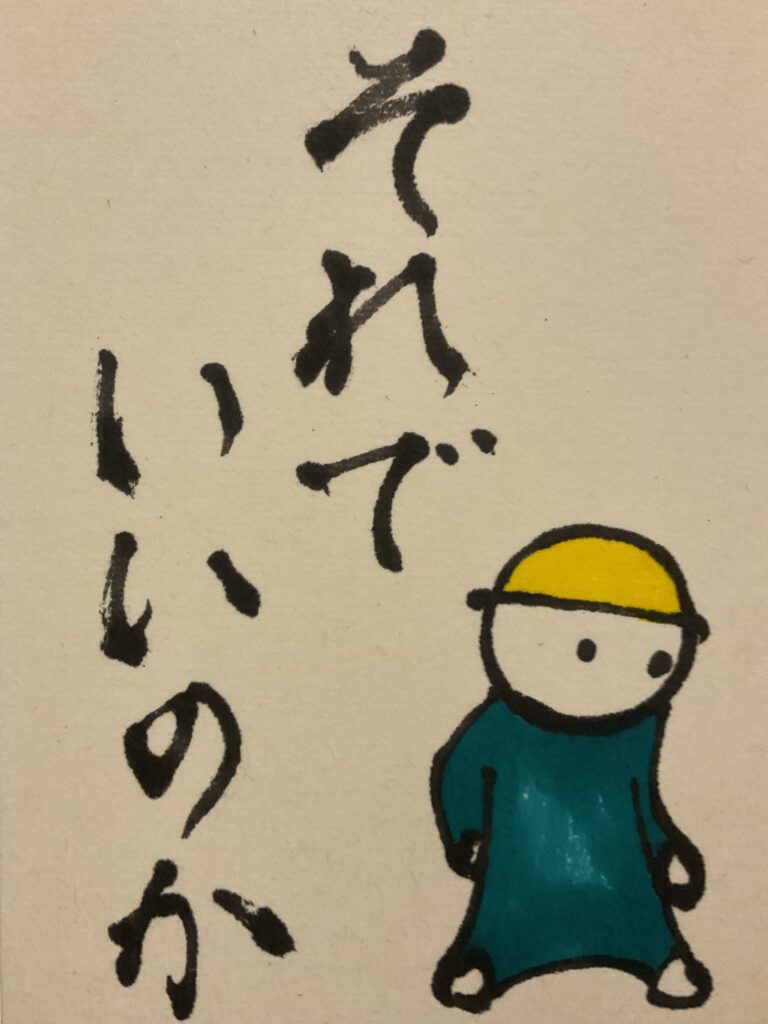 それで
いいのか